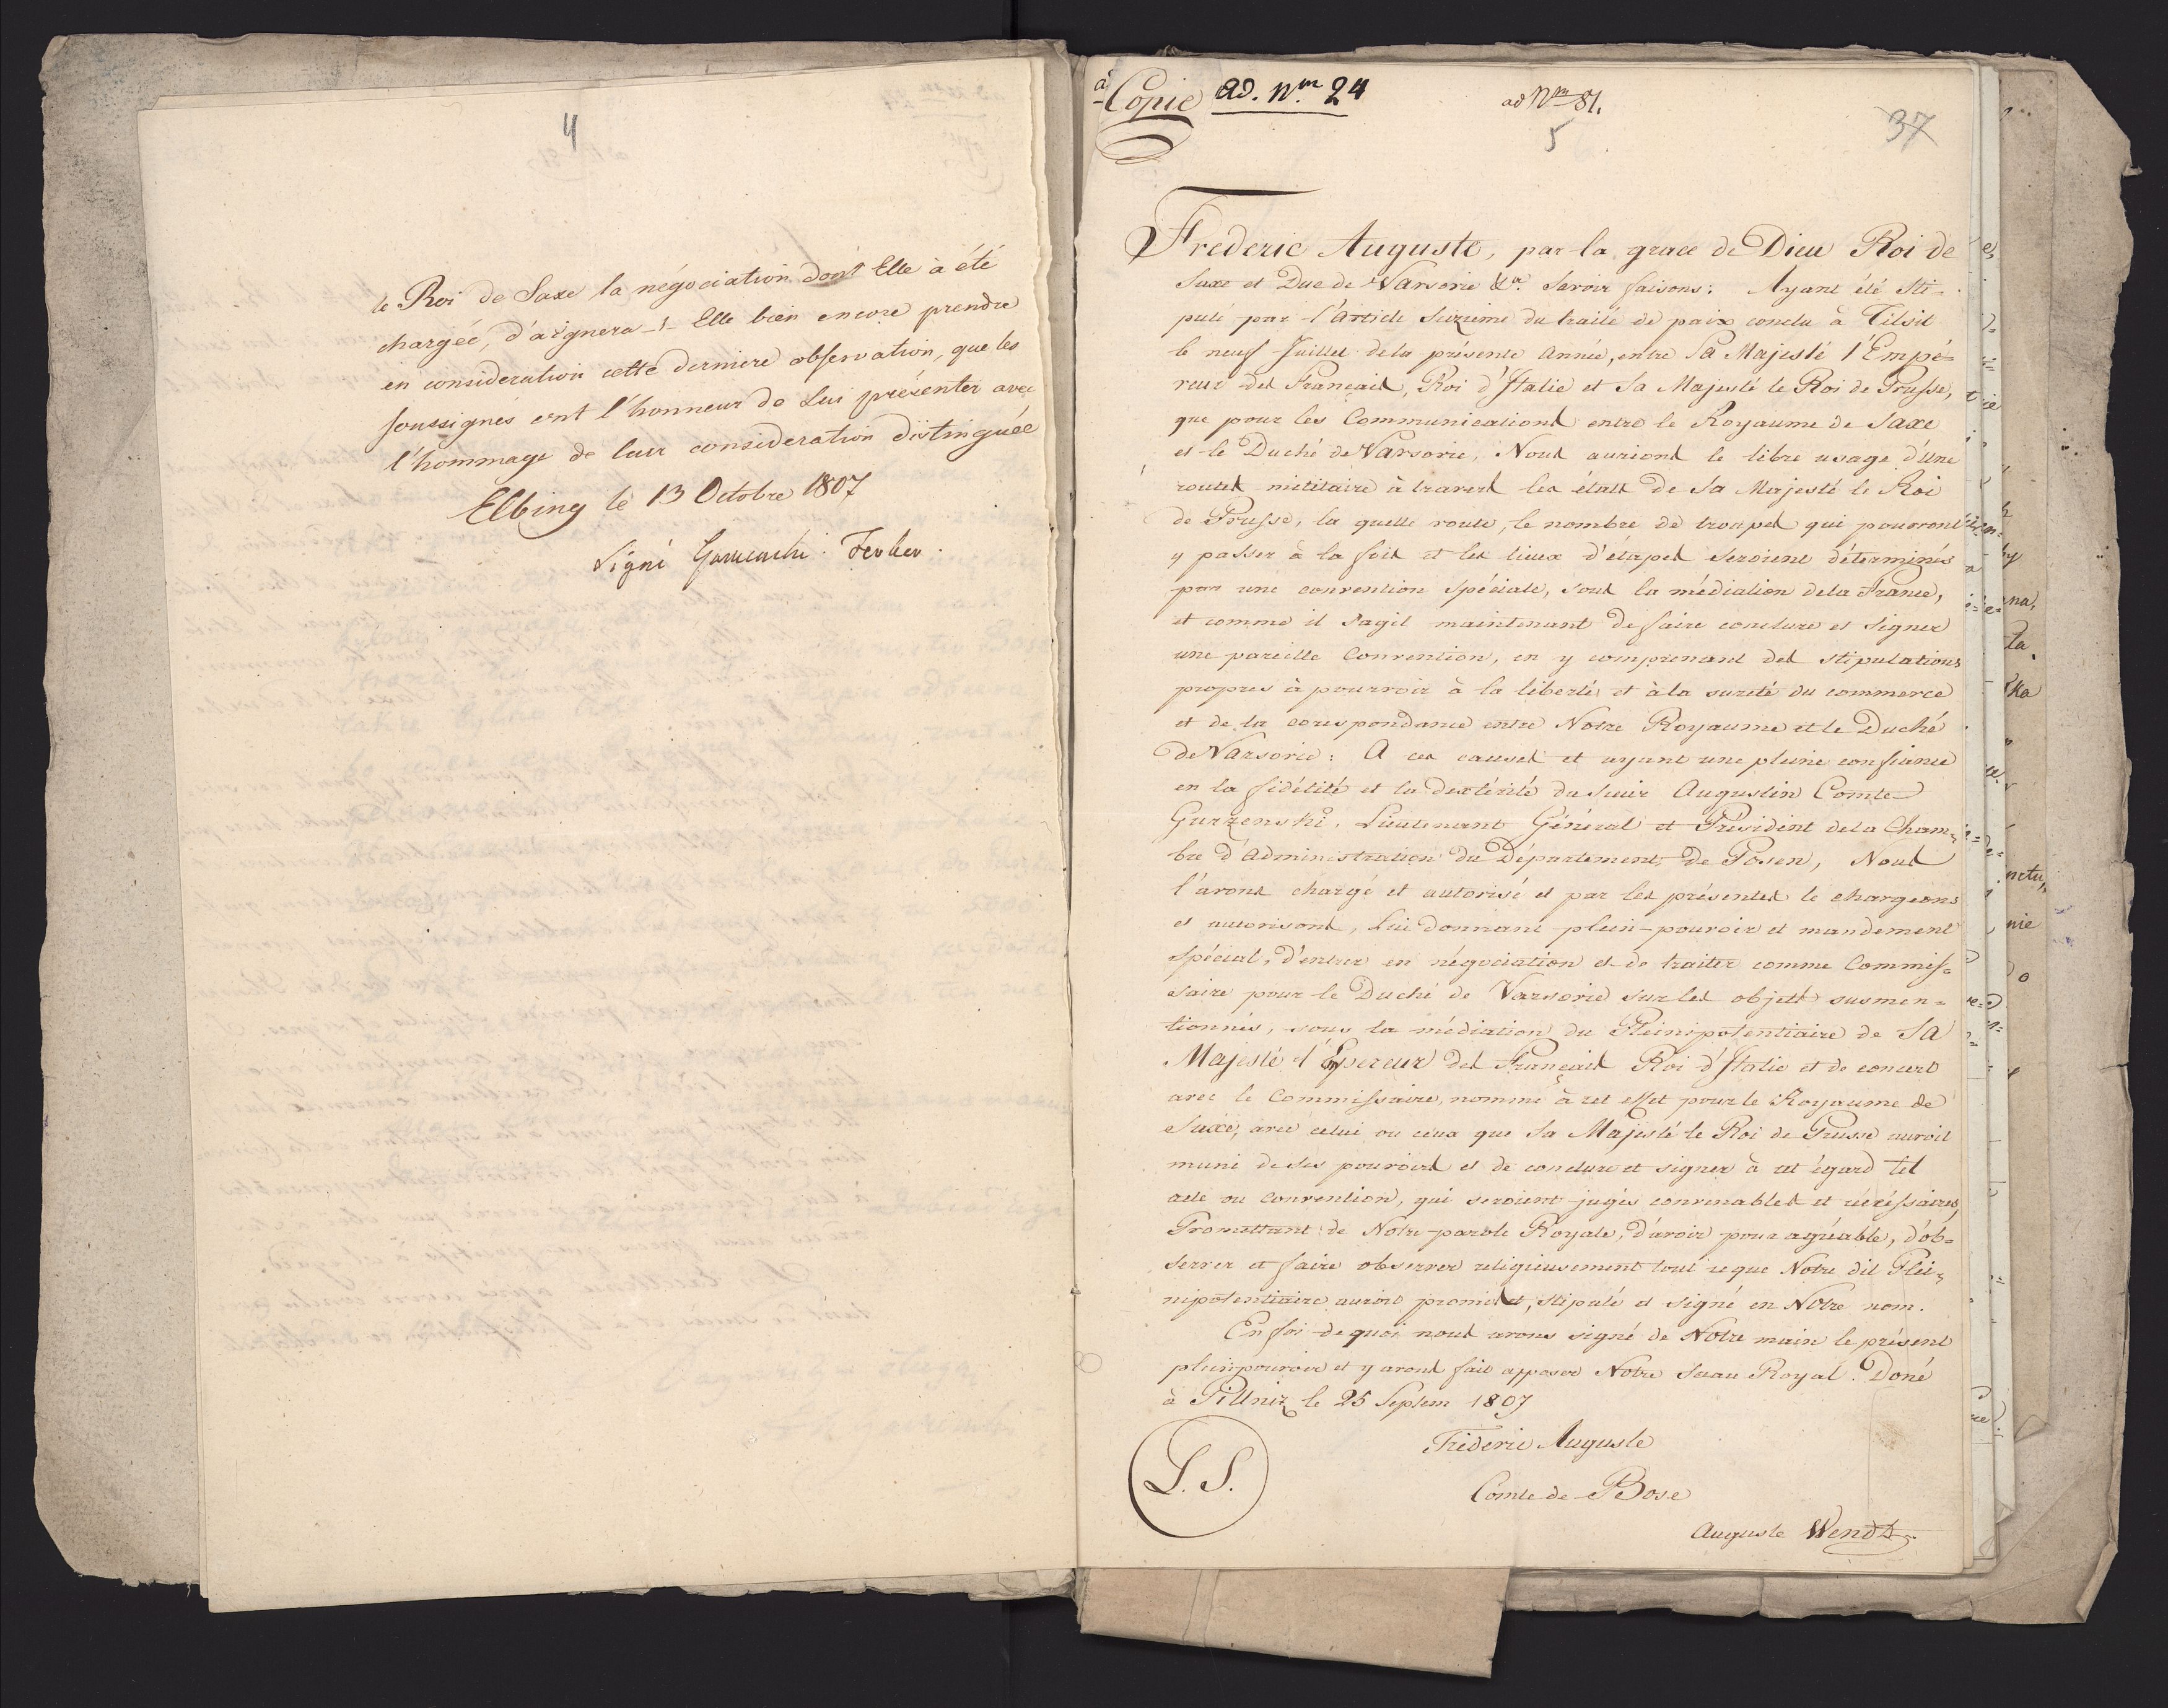 4
le Roi de Saxe la négociation dont Elle à été
chargée, d'aignera-t-Elle bien encore prendre
en consideration cette derniere observation, que les
soussignés ont l'honneur de Lui présenter avec
l'hommage de leur consideration distinguée
Elbing le 13 Octobre 1807
Signé Ferber.
à Copie ad. Nm 24
ad Nm 81.
5
37
Frederic Auguste, par la grace de Dieu Roi de
Saxe et Duc de Varsovie &a. Savoir faisons: Ayant été Sti-
pulé par l'Article Seizieme du traité de paix conclu à Tilsit
le neuf Juillet de la présente Année, entre Sa Majesté l'Empé-
reur des Français, Roi d'Italie et Sa Majesté le Roi de Prusse,
que pour les Communications entre le Royaume de Saxe
et le Duché de Varsovie, Nous aurions le libre usage d'une
route militaire à travers les états de Sa Majesté le Roi
de Prusse, la quelle route, le nombre de troupes qui pourront
y passer à la fois et les lieux d'étapes seroient déterminés
par une convention spéciale, sous la médiation de la France,
et comme il s'agit maintenant de faire conclure et signer
une pareille Convention, en y comprenant des stipulations
propres à pourvoir à la liberté et à la sureté du commerce
et de la corespondance entre Notre Royaume et le Duché
de Varsovie: A ces causes et ayant une pleine confiance
en la fidélité et la dextérité du Sieur Augustin Comte
Gurzenski, Lieutenant Général et Président de la Cham-
bre d'Administration du Département de Posen, Nous
l'avons chargé et autorisé et par les présentes le chargeons
et autorisons, Lui donnant plein-pouvoir et mandement
spécial, d'entrer en négociation et de traiter comme Commis-
saire pour le Duché de Varsovie sur les objets susmen-
tionnés, sous la médiation du Plénipotentiaire de Sa
Majesté l'Empereur des Français Roi d'Italie et de concert
avec le Commissaire, nommé à cet effet pour le Royaume de
Saxe, avec celui ou ceux que Sa Majesté le Roi de Prusse auroit
muni de ses pouvoirs et de conclure et signer à cet égard tel
acte ou Convention, qui seroient jugés convenables et nécessaires,
Promettant de Notre parole Royale, d'avoir pour agréable, d'ob-
server et faire observer religieusement tout ce que Notre dit Plé-
nipotentiaire auroit promis, stipulé et signé en Notre nom.
En foi de quoi nous avons signé de Notre main le présent
pleinpouvoir et y avons fait apposer Notre Sceau Royal. Doné
à Pillniz le 25 Septem 1807
Fréderic Auguste
L. S.
Comte de Bose
Auguste Wendt